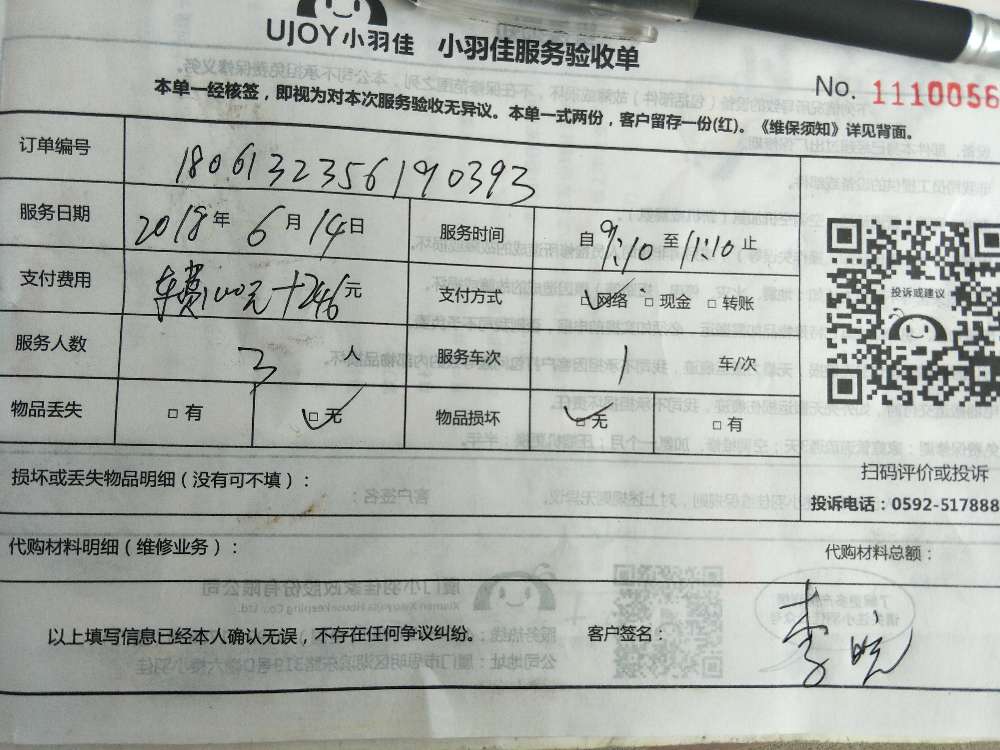 UJOY小羽佳 小羽佳服务验收单
No. 1110056
本单一经核签，即视为对本次服务验收无异议。本单一式两份，客户留存一份(红)。《维保须知》详见背面。
订单编号 1806132356190393
服务日期 2018年 6月 14日 服务时间 自9:10至11:10止
支付费用 车费100元+246元 支付方式 □网络 □现金 □转账
服务人数 3 人 服务车次 1 车/次
物品丢失 □有 □无 物品损坏 □无 □有
投诉或建议
损坏或丢失物品明细（没有可不填）：
扫码评价或投诉
投诉电话：0592-517888
代购材料明细（维修业务）：
代购材料总额：
以上填写信息已经本人确认无误，不存在任何争议纠纷。 客户签名：